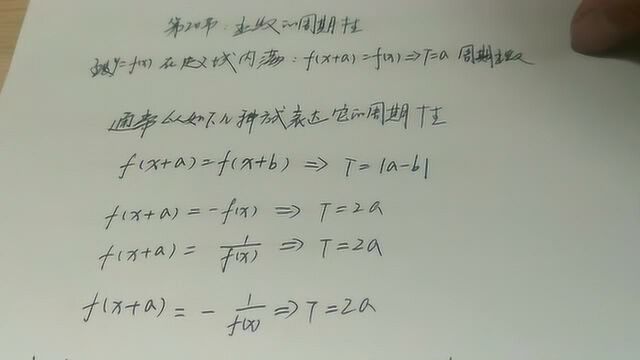 第20节:函数的周期性
函数y=f(x)在定义域内满足:f(x+a)=f(x)⇒T=a 周期函数
通常以如下几种方式表达它的周期性
f(x+a)=f(x+b) ⇒ T=|a-b|
f(x+a)=-f(x) ⇒ T=2a
f(x+a)= 1/f(x) ⇒ T=2a
f(x+a)= - 1/f(x) ⇒ T=2a